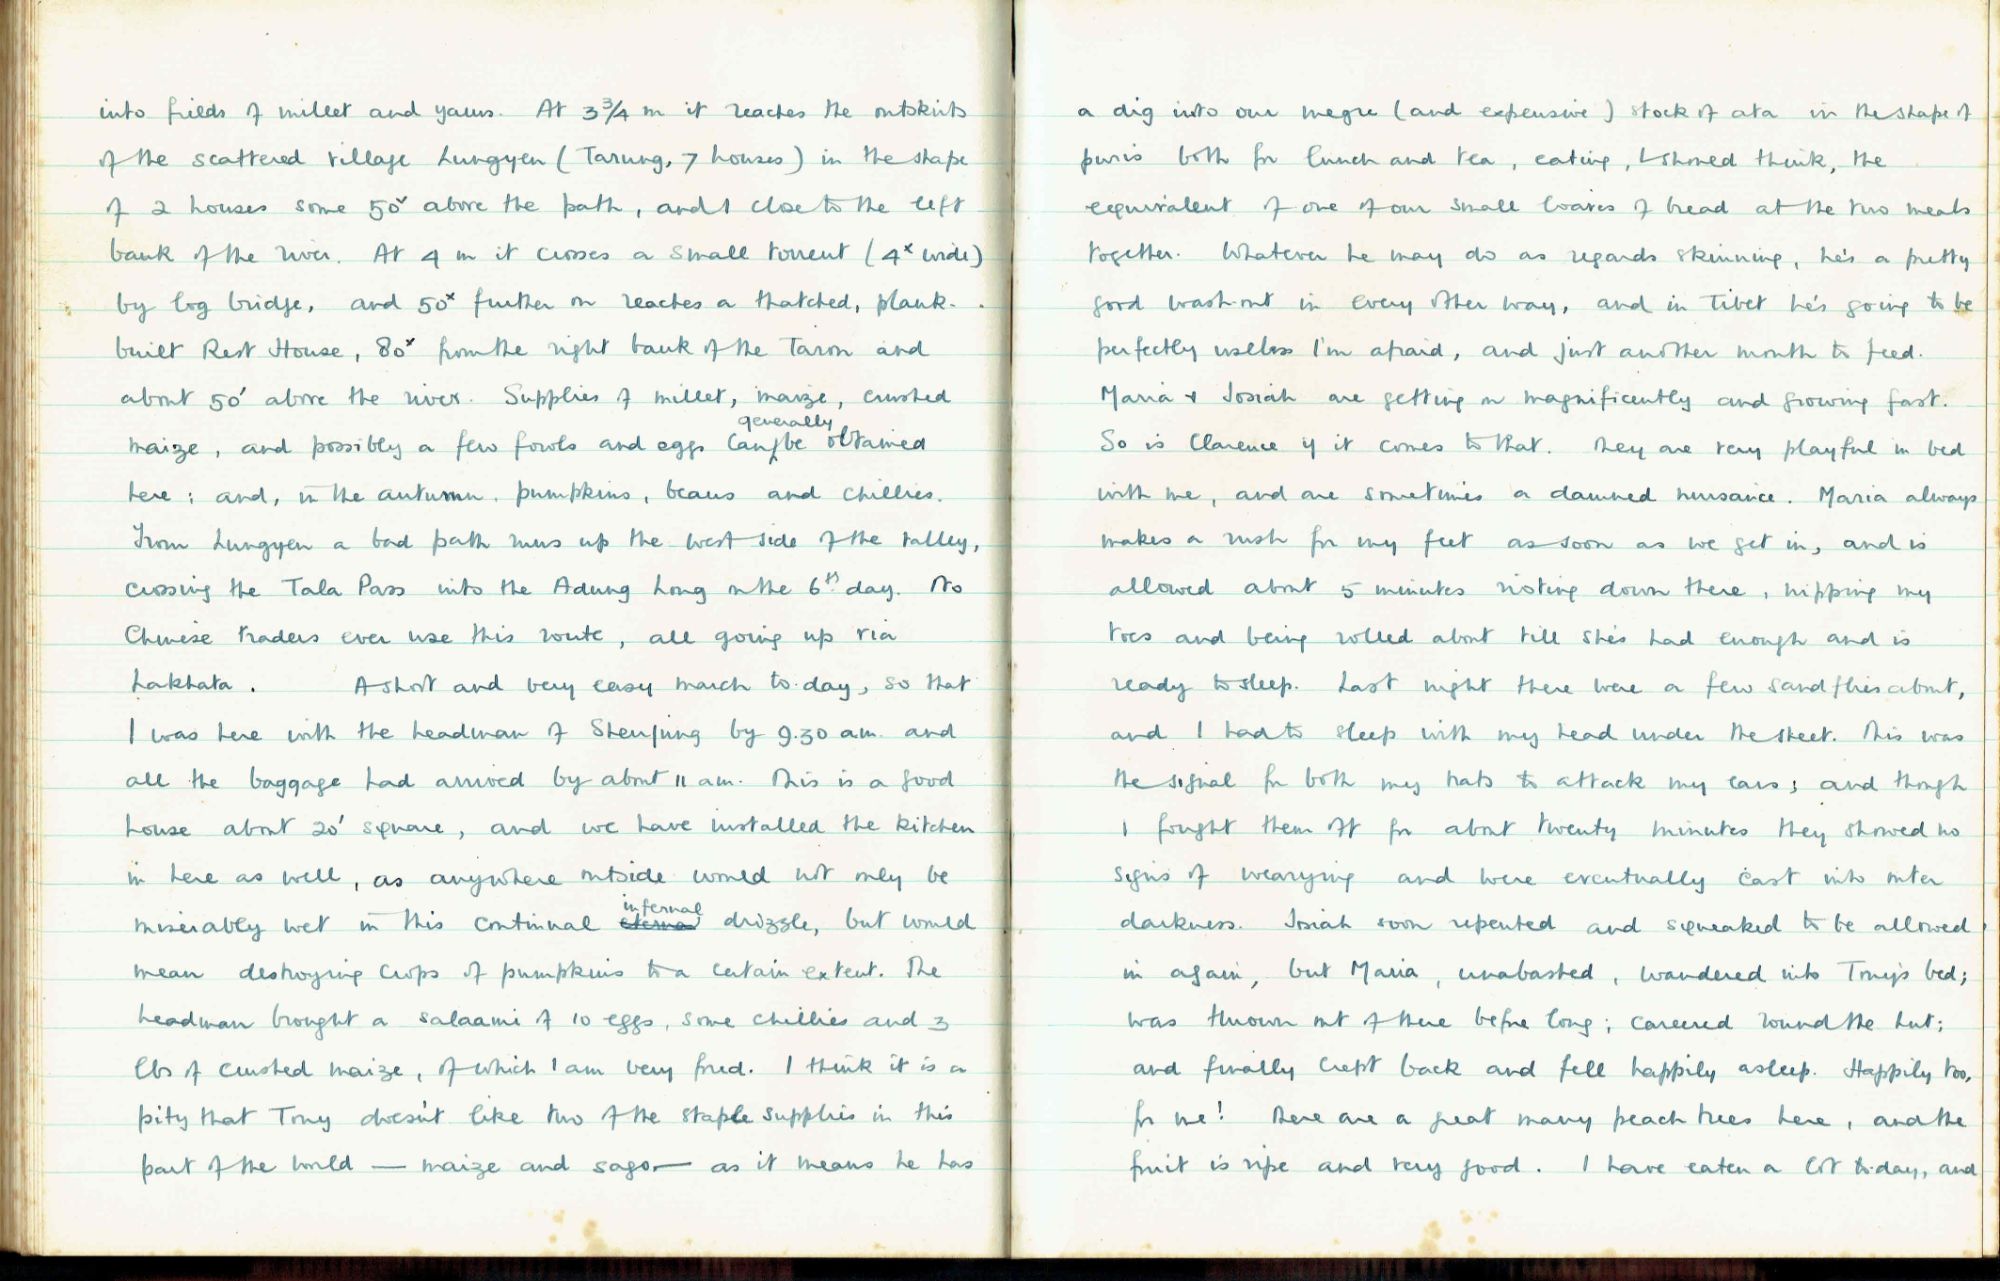 into fields of millet and yams. At 3¾ m it reaches the outskirts
of the scattered village Lungyen (Tarung, 7 houses) in the shape
of 2 houses some 50ˣ above the path, and 1 close to the left
bank of the river. At 4 m it crosses a small torrent (4ˣ wide)
by log bridge, and 50ˣ further on reaches a thatched, plank-
built Rest House, 80ˣ from the right bank of the Taron and
about 50' above the river. Supplies of millet, maize, crushed
generally
maize, and possibly a few fowls and eggs can be obtained
here; and, in the autumn, pumpkins, beans and chillies.
From Lungyen a bad path runs up the west side of the valley,
crossing the Tala Pass into the Adung Long on the 6th day. No
Chinese traders ever use this route, all going up via
Lakhata. A short and very easy march to-day, so that
I was here with the headman of Shenjung by 9.30 am. and
all the baggage had arrived by about 11 am. This is a good
house about 20' square, and we have installed the kitchen
in here as well, as anywhere outside would not only be
infernal
miserably wet in this continual eternal drizzle, but would
mean destroying crops of pumpkins to a certain extent. The
headman brought a salaami of 10 eggs, some chillies and 3
lbs of crushed maize, of which I am very fond. I think it is a
pity that Tony doesn't like two of the staple supplies in this
part of the world — maize and sago — as it means he has
a dig into our megre (and expensive) stock of ata in the shape of
puris both for lunch and tea, eating, I should think, the
equivalent of one of our small loaves of bread at the two meals
together. Whatever he may do as regards skinning, he's a pretty
good wash-out in every other way, and in Tibet he's going to be
perfectly useless I'm afraid, and just another mouth to feed.
Maria & Josiah are getting on magnificently and growing fast.
So is Clarence if it comes to that. They are very playful in bed
with me, and are sometimes a damned nuisance. Maria always
makes a rush for my feet as soon as we get in, and is
allowed about 5 minutes rioting down there, nipping my
toes and being rolled about till she's had enough and is
ready to sleep. Last night there were a few sandflies about,
and I had to sleep with my head under the sheet. This was
the signal for both my rats to attack my ears; and though
I fought them off for about twenty minutes they showed no
signs of wearying and were eventually cast into outer
darkness. Josiah soon repented and squeaked to be allowed
in again, but Maria, unabashed, wandered into Tony's bed;
was thrown out of there before long; careered round the hut;
and finally crept back and fell happily asleep. Happily too,
for me! There are a great many peach trees here, and the
fruit is ripe and very good. I have eaten a lot to-day, and